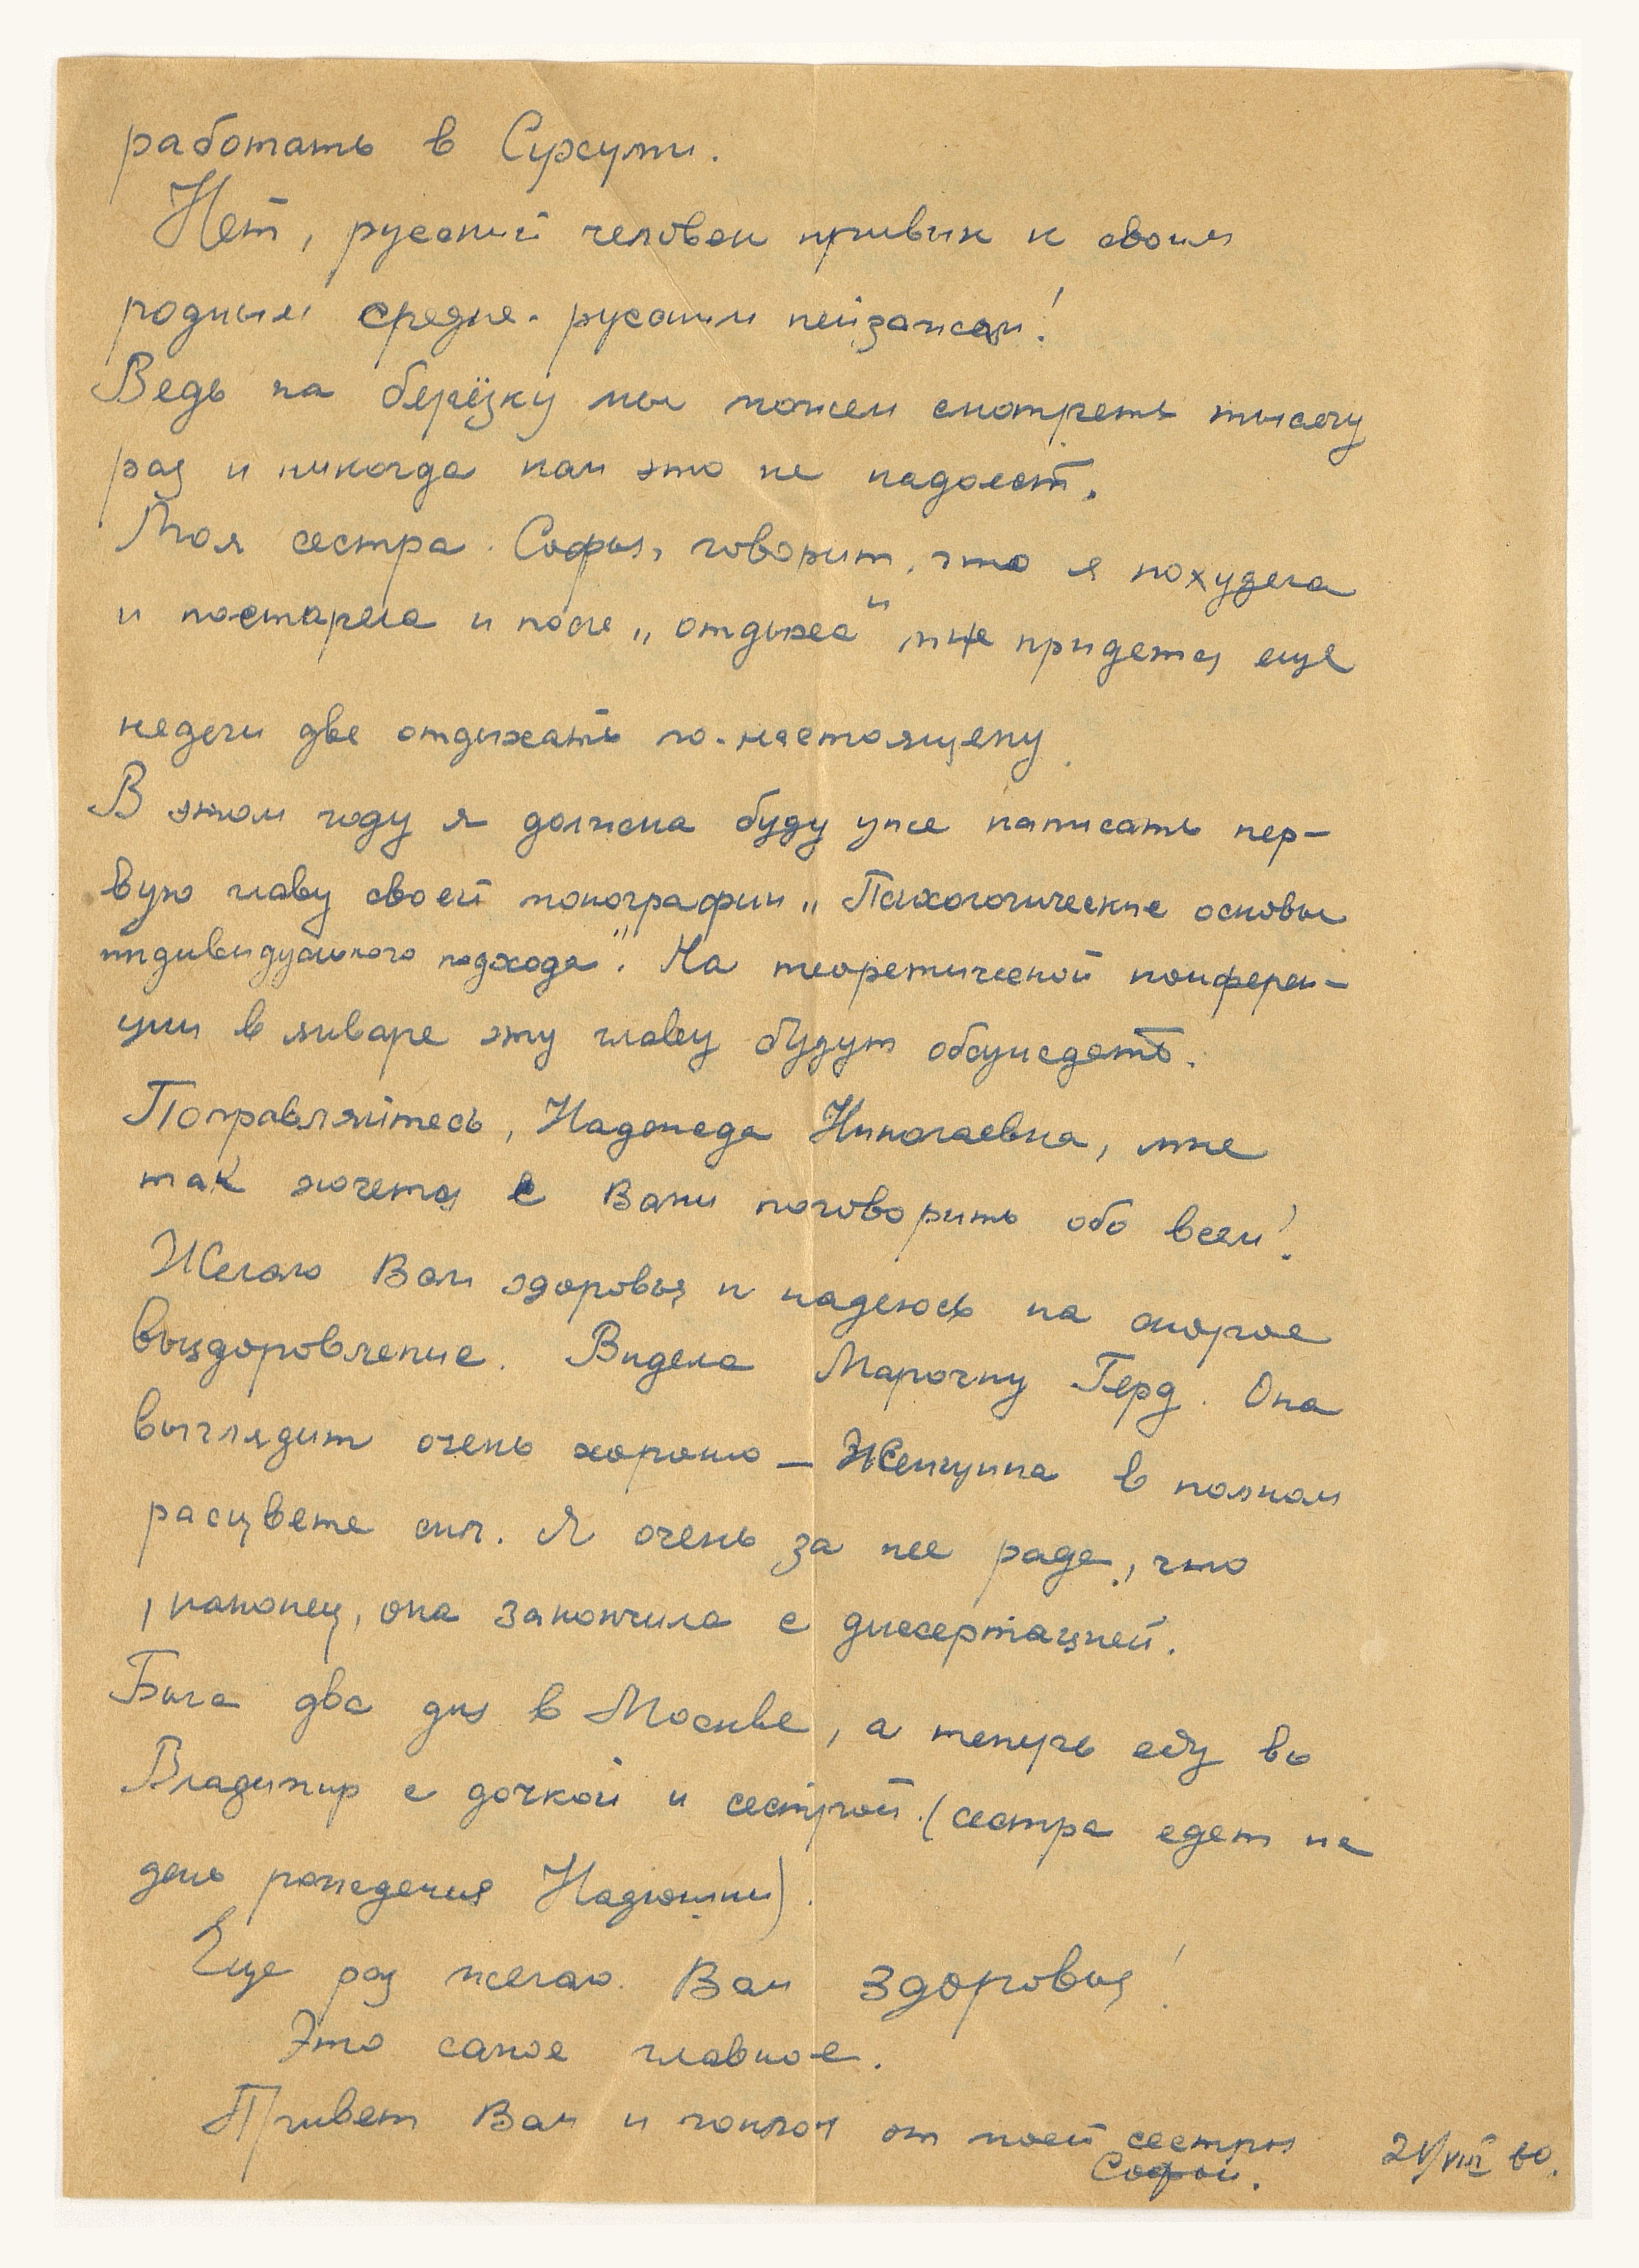 работать в Сухуми.
Нет, русский человек привык к своим
родным средне-русским пейзажам!
Ведь на берёзку мы можем смотреть тысячу
раз и никогда нам это не надоест.
Моя сестра Софья, говорит, что я похудела
и постарела и после „отдыха" мне придется еще
недели две отдыхать по-настоящему.
В этом году я должна буду уже написать пер-
вую главу своей монографии „Психологические основы
индивидуального подхода". На теоретической конферен-
ции в январе эту главу будут обсуждать.
Поправляйтесь, Надежда Николаевна, мне
так хочется с Вами поговорить обо всем!
Желаю Вам здоровья и надеюсь на скорое
выздоровление. Видела Марочку Герд. Она
выглядит очень хорошо – Женщина в полном
расцвете сил. Я очень за нее рада, что
, наконец, она закончила с диссертацией.
Была два дня в Москве, а теперь еду во
Владимир с дочкой и сестрой (сестра едет на
день рождения Надюши).
Еще раз желаю Вам здоровья!
Это самое главное.
Привет Вам и поклон от моей сестры
Софьи.